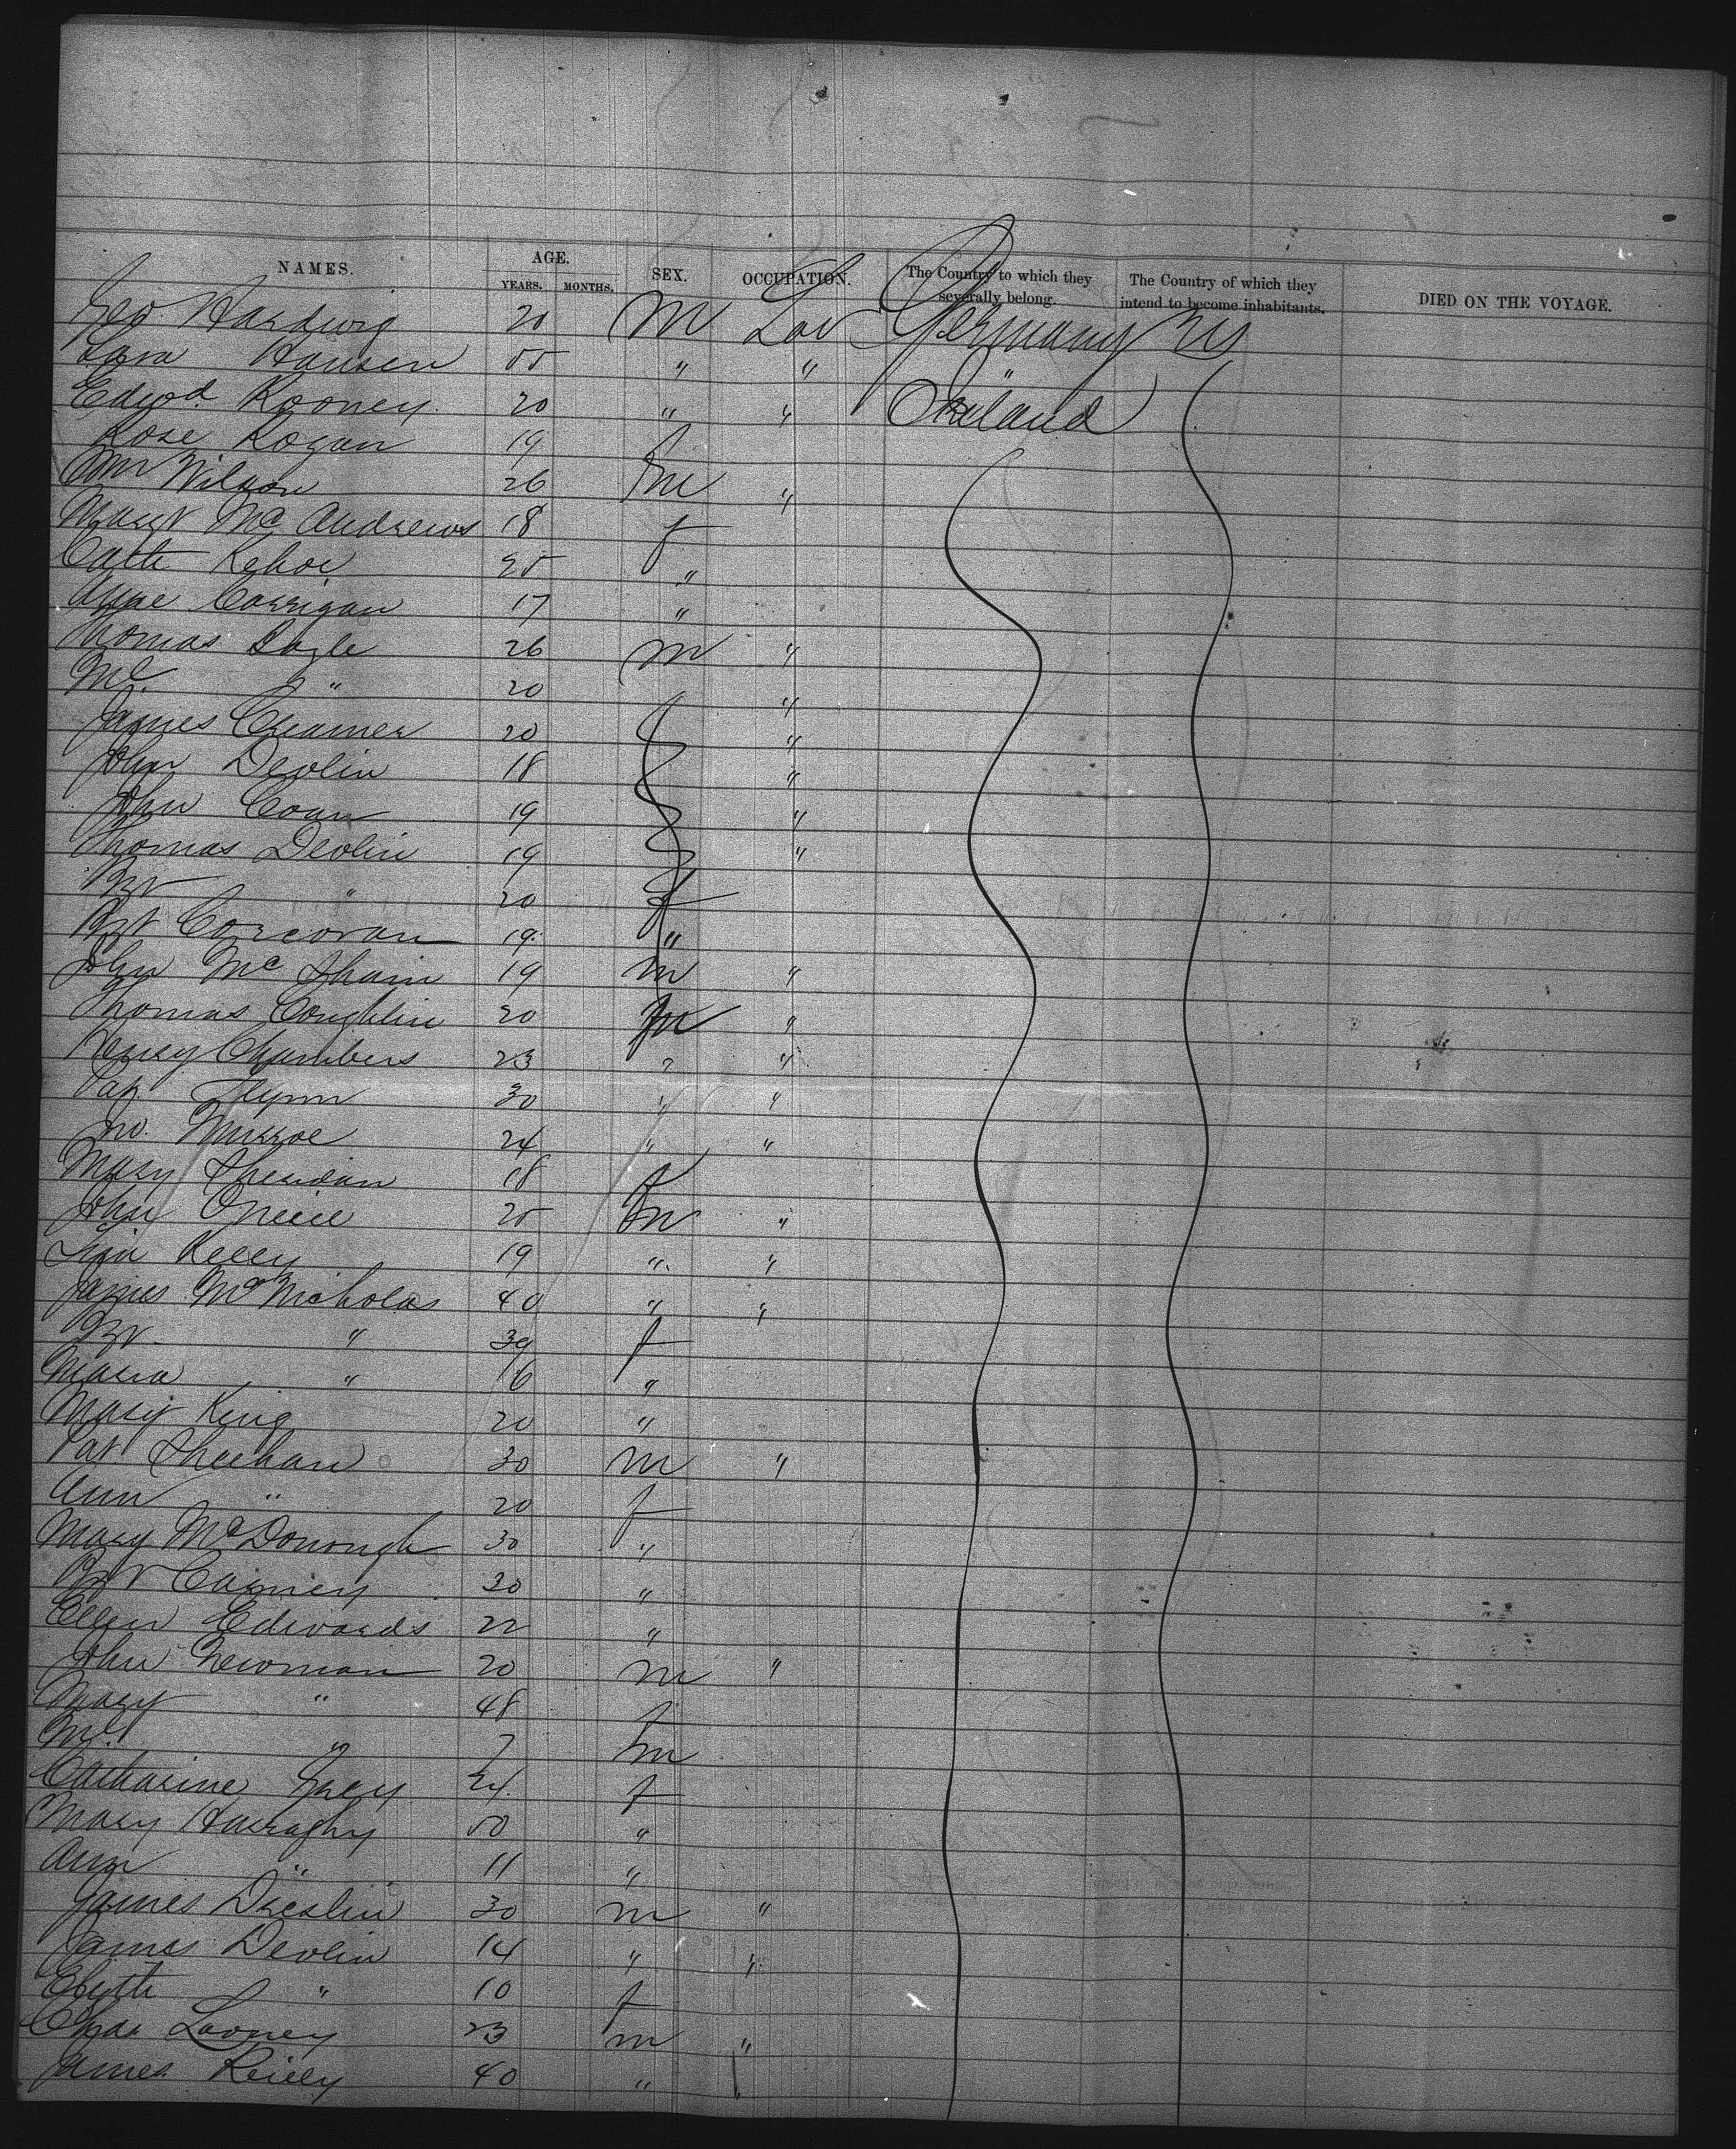 NAMES. AGE. SEX. OCCUPATION. The Country to which they severally belong. The Country of which they intend to become inhabitants. DIED ON THE VOYAGE.
YEARS. MONTHS.
Geo Hardwig 20 m Lab Germany US
Hansen 55 " " "
Edwd. Rooney 20 " " Ireland
Rose Rogan 19 f
Wm Wilson 26 m "
Margt McAndrews 18 f
Cath Kehoe 25 "
Anne Corrigan 17 "
Thomas Bogle 26 m "
Ml. " 20 "
James Creamer 20 "
John Devlin 18 "
John Coan 19 "
Thomas Devlin 19 "
Bt " 20 f
Bgt Corcoran 19 "
John McShain 19 m "
Thomas Coughlin 20 m "
Henry Chambers 23 " "
Pat. Flynn 30 " "
Jno. Munroe 24 " "
Mary Sheridan 18 f
John Oneill 25 m "
Kelly 19 " "
James McNicholas 40 " "
Bt. " 39 f
Maria " 16 "
Mary King 20 "
Pat Sheehan 30 m "
Ann " 20 f
Mary McDonough 30 "
Bgt Cairney 30 "
Ellen Edwards 22 "
John Newman 20 m "
Margt " 48 f
Ml. " 7 m
Catharine Grey 24 f
Mary Harraghy 50 "
Ann " 11 "
James Breslin 30 m "
James Devlin 14 " "
Elizth " 10 f
Chas Looney 23 m "
James Reilly 40 " "